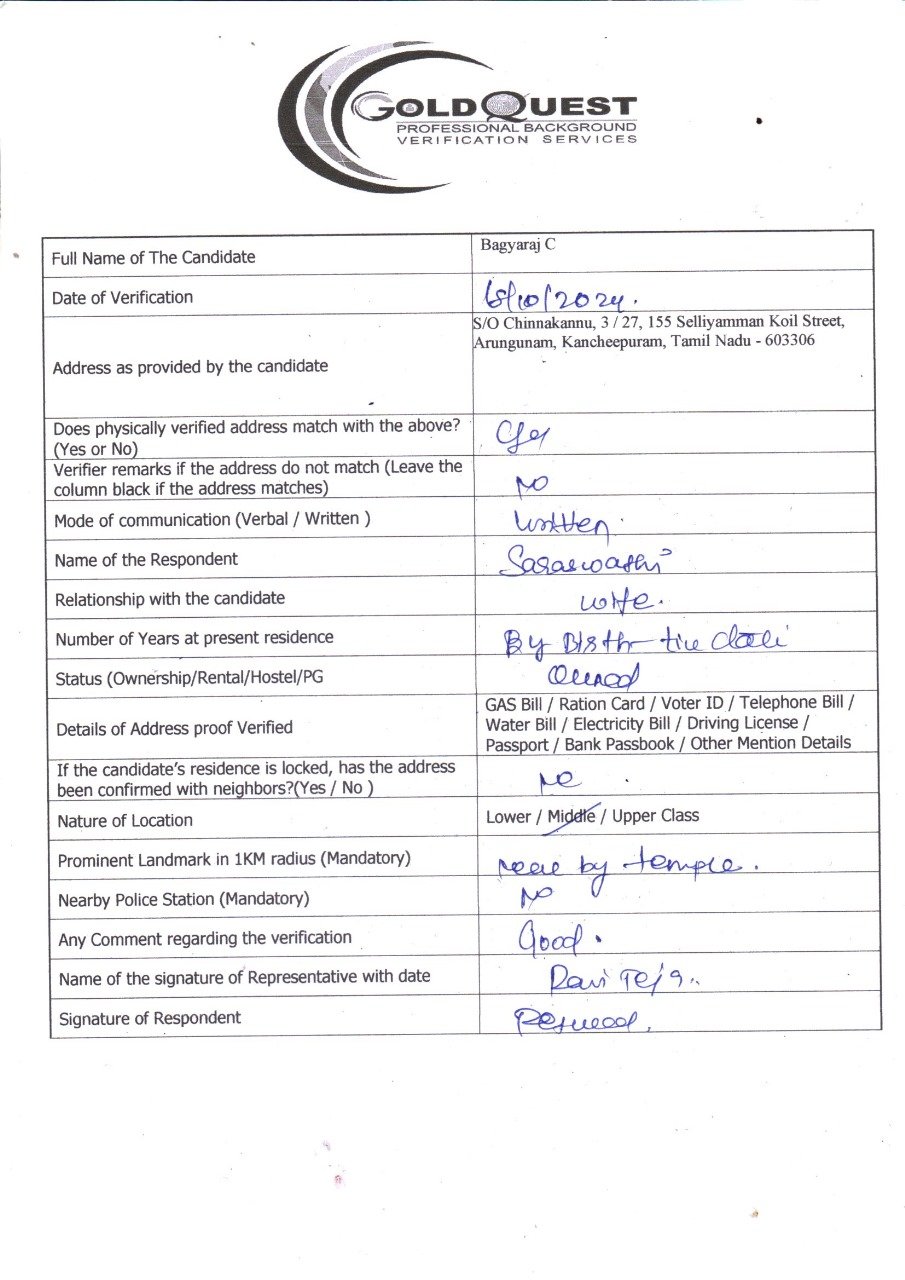 GOLDQUEST
PROFESSIONAL BACKGROUND
VERIFICATION SERVICES
Full Name of The Candidate
Bagyaraj C
Date of Verification
/10/2024.
Address as provided by the candidate
S/O Chinnakannu, 3 / 27, 155 Selliyamman Koil Street,
Arungunam, Kancheepuram, Tamil Nadu - 603306
Does physically verified address match with the above?
(Yes or No)
Yes
Verifier remarks if the address do not match (Leave the
column black if the address matches)
NO
Mode of communication (Verbal / Written )
Written.
Name of the Respondent
Saraswathi
Relationship with the candidate
wife.
Number of Years at present residence
By Birth
Status (Ownership/Rental/Hostel/PG
Owned
Details of Address proof Verified
GAS Bill / Ration Card / Voter ID / Telephone Bill /
Water Bill / Electricity Bill / Driving License /
Passport / Bank Passbook / Other Mention Details
If the candidate's residence is locked, has the address
been confirmed with neighbors?(Yes / No )
NO
Nature of Location
Lower / Middle / Upper Class
Prominent Landmark in 1KM radius (Mandatory)
near by temple.
Nearby Police Station (Mandatory)
NO
Any Comment regarding the verification
Good.
Name of the signature of Representative with date
Ravi Teja..
Signature of Respondent